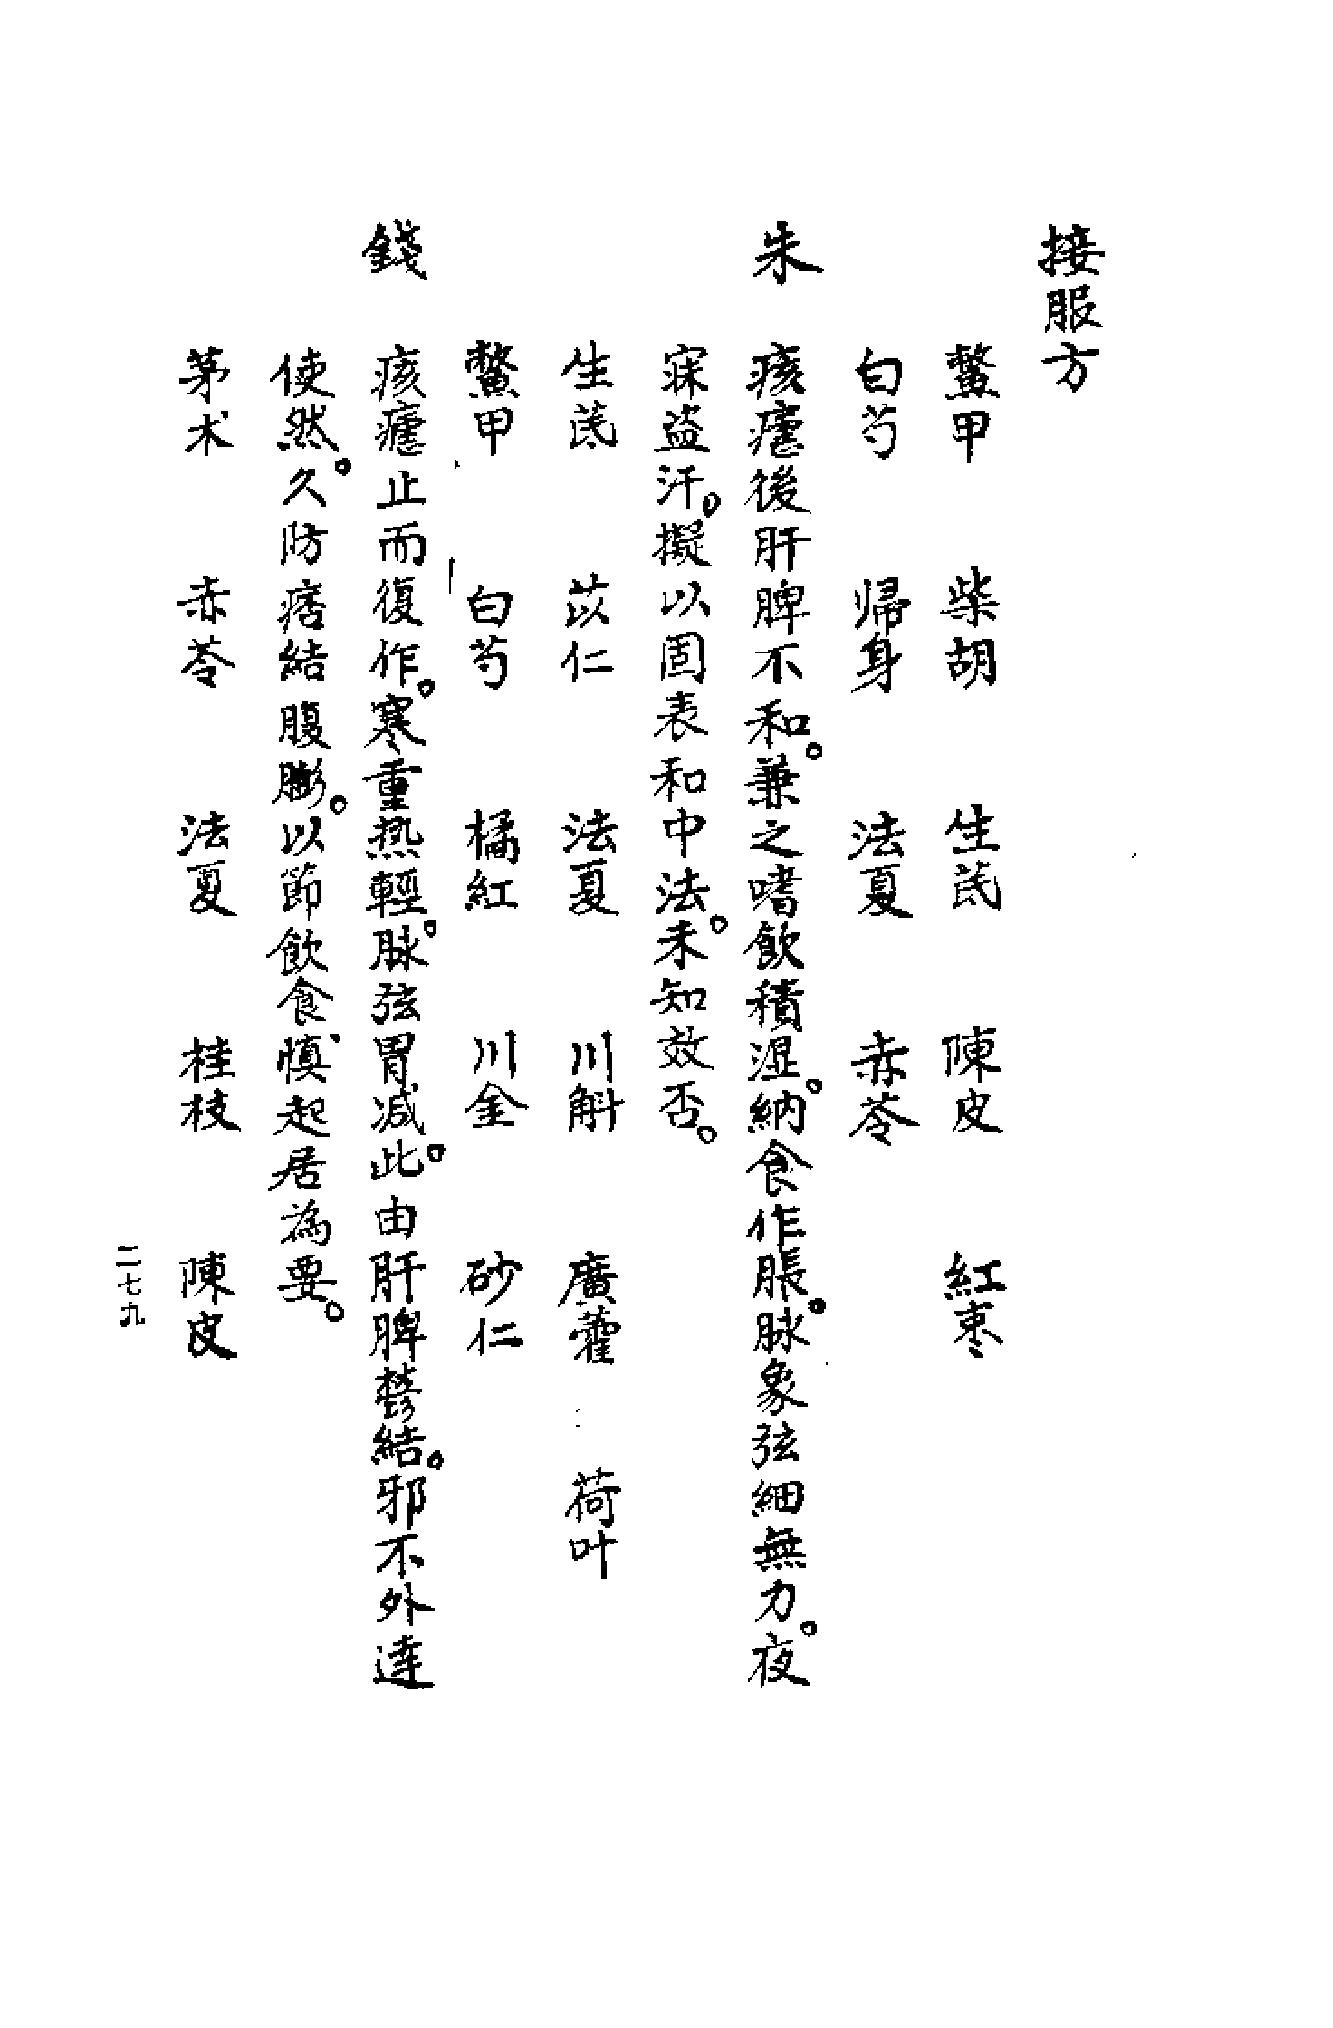 接服方
鱉甲 柴胡 生芪 陳皮 紅枣
白芍 帰身 法夏 赤苓
朱 痎瘧後肝脾不和。兼之嗜飲積濕。納食作脹。脉象弦細無力。夜
寐盗汗。擬以固表和中法。未知效否。
生芪 苡仁 法夏 川斛 廣藿 荷叶
鱉甲 白芍 橘紅 川金 砂仁
錢 痎瘧止而復作。寒重热輕。脉弦胃减。此由肝脾鬱結。邪不外達
使然。久防痞結腹膨。以節飲食、慎起居為要。
茅术 赤苓 法夏 桂枝 陳皮
二七九